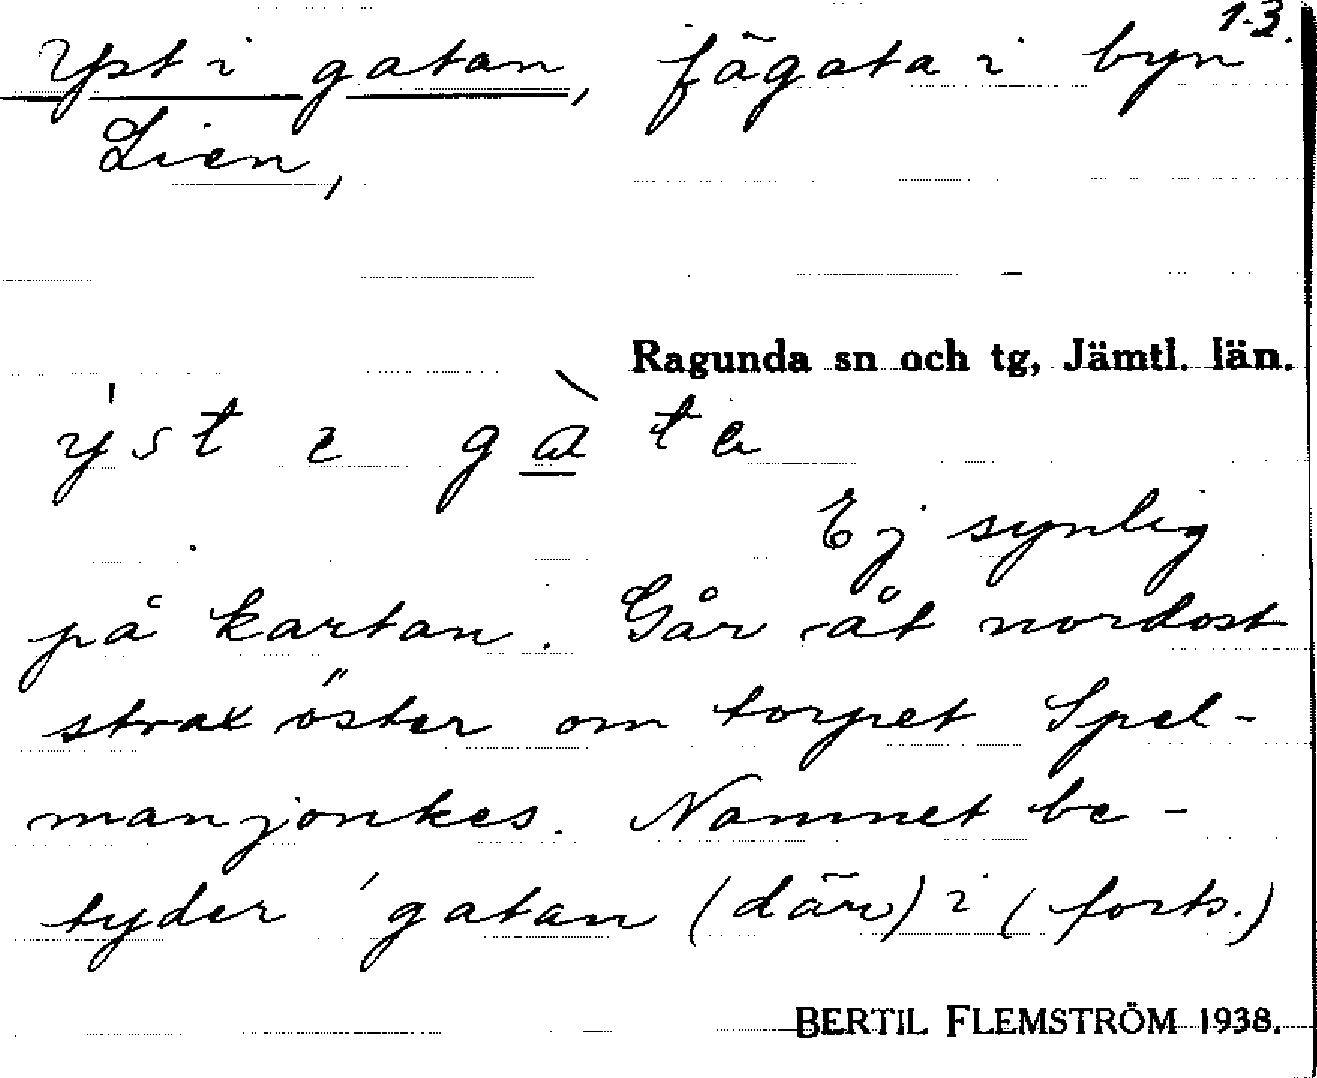 13.
Yst i gatan, fägata i byn
Lien,
Ragunda sn och tg, Jämtl. län.
ýst e gàta
Ej synlig
på kartan. Går åt nordost
strax öster om torpet Spel-
manjonkes. Namnet be-
tyder 'gatan (där) i (forts.)
BERTIL FLEMSTRÖM 1938.